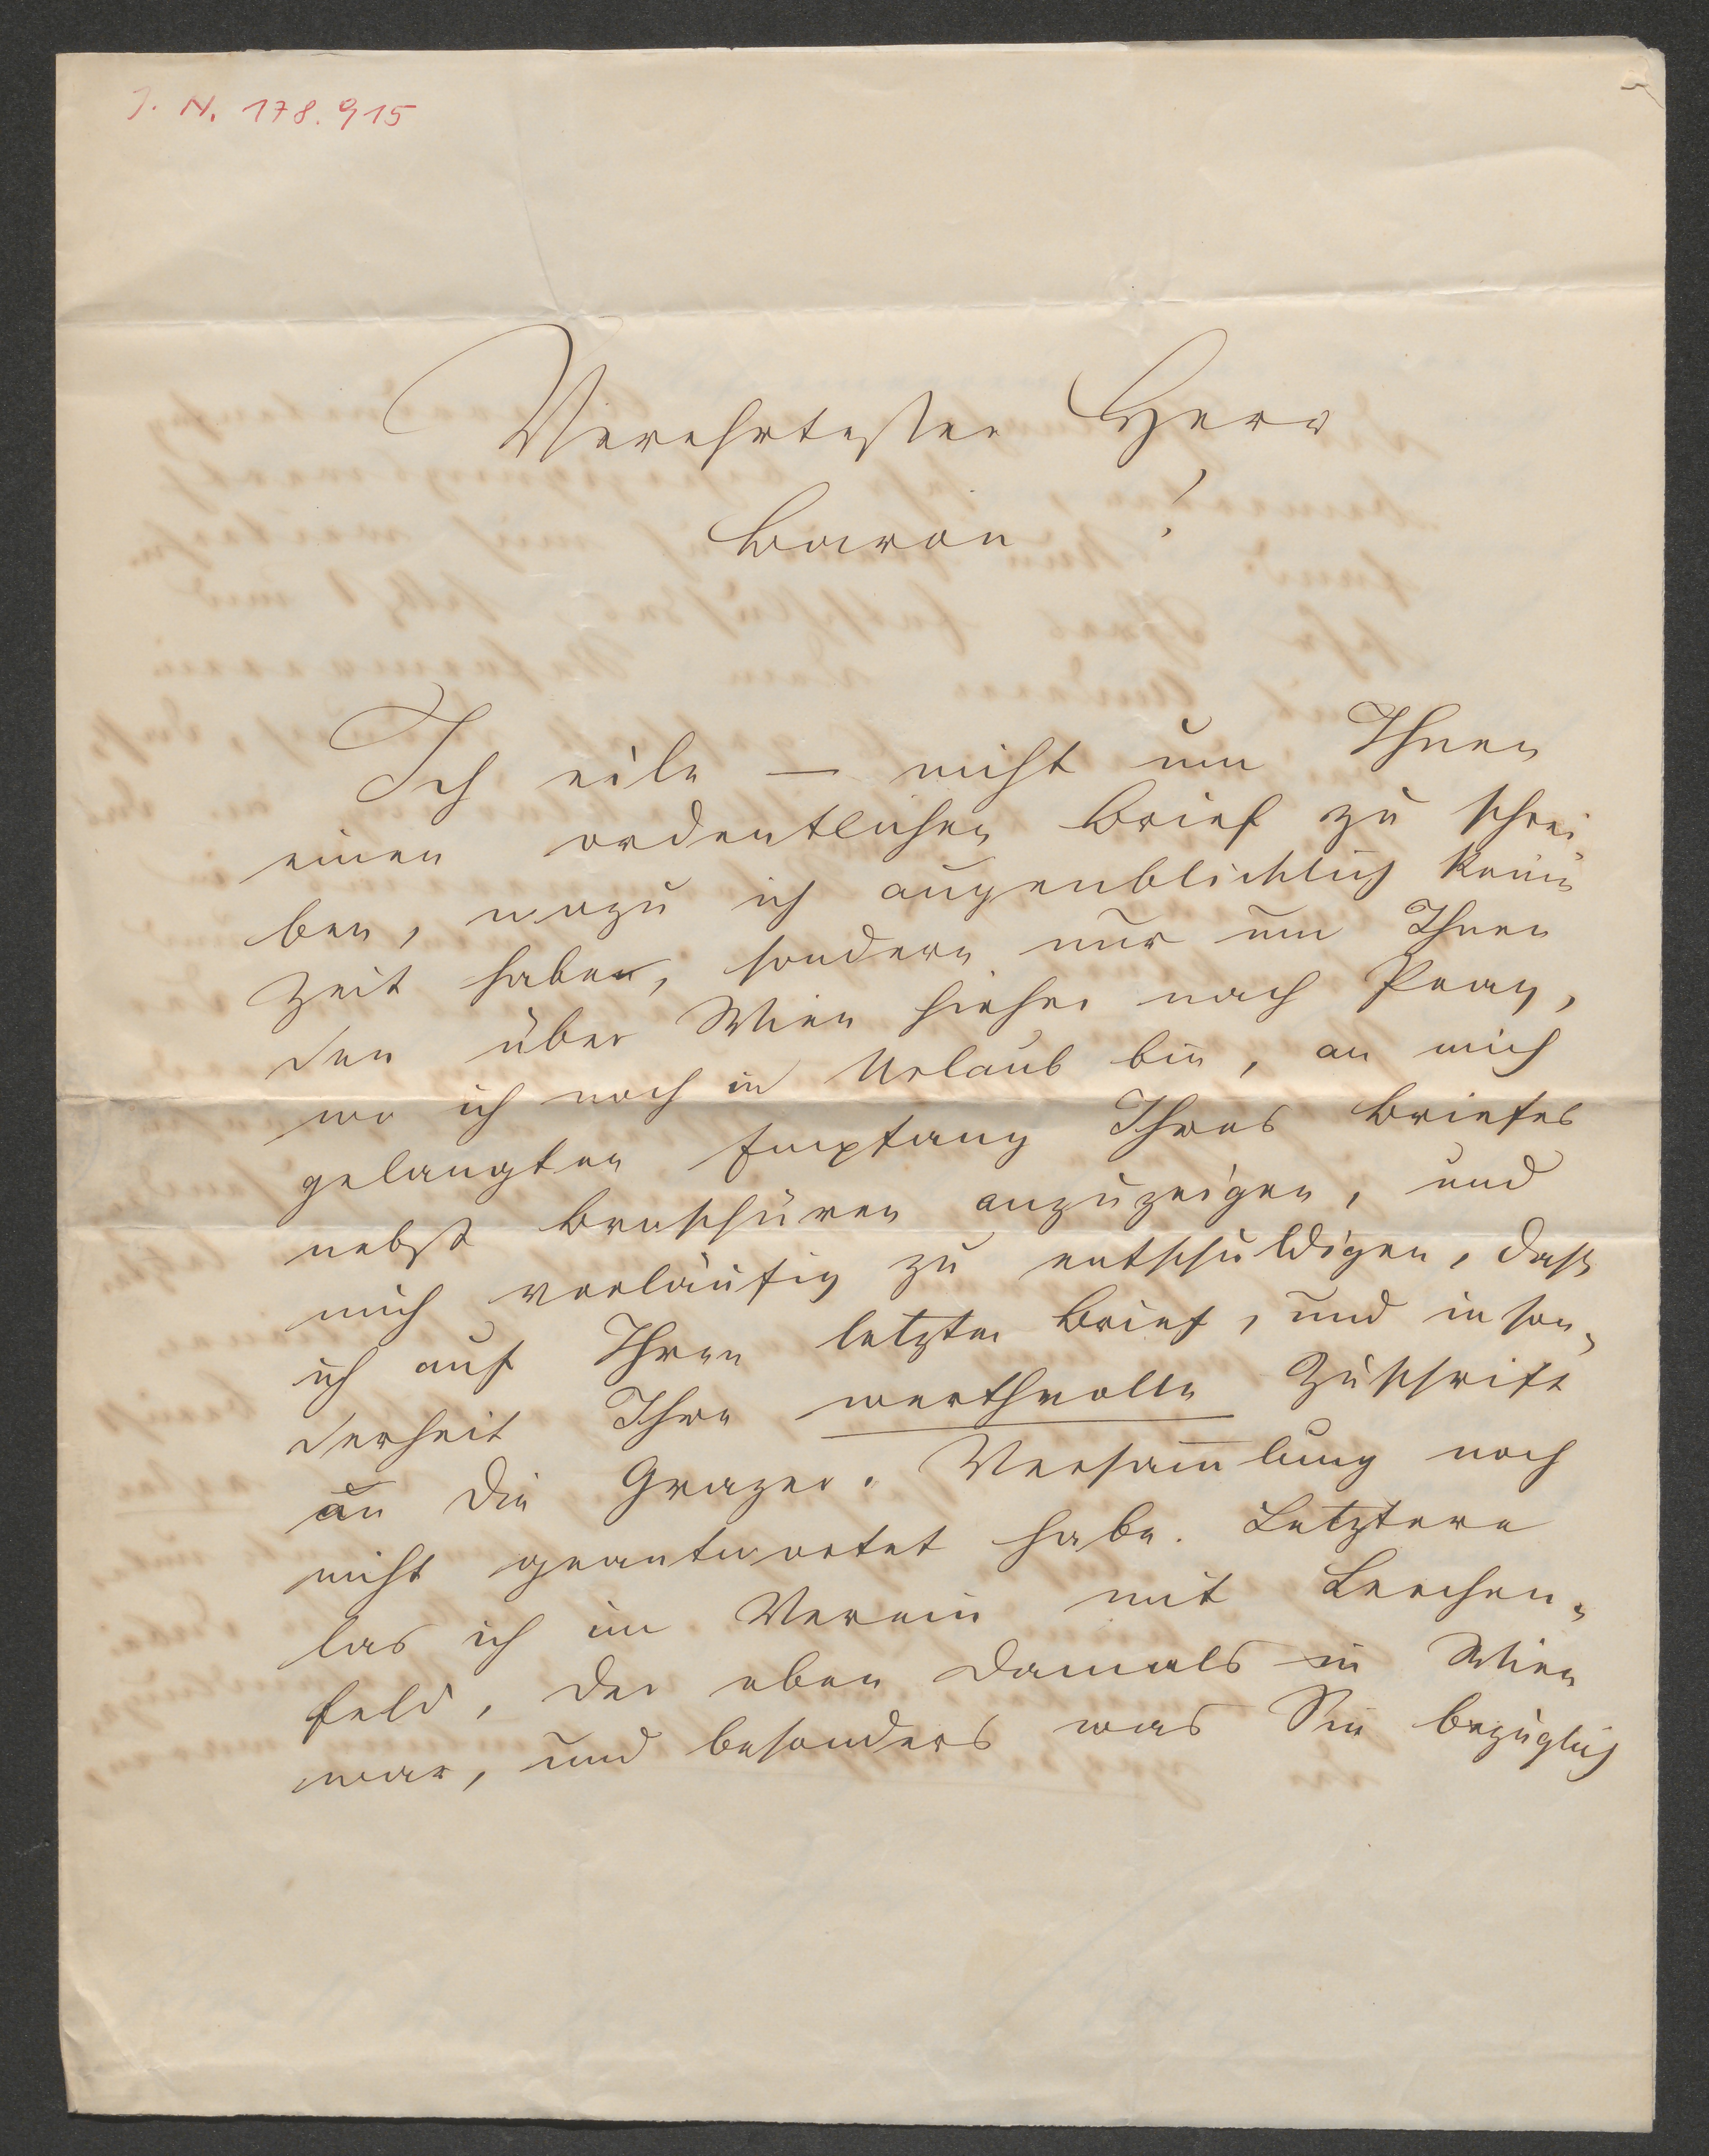 J. N. 178.915
Verehrtester Herr
Baron!
Ich eile — nicht um Ihnen
einen ordentlichen Brief zu schrei-
ben, wozu ich augenblicklich keine
Zeit habe, sondern nur um Ihnen
den über Wien hieher nach Prag,
wo ich noch in Urlaub bin, an mich
gelangten Empfang Ihres Briefes
nebst Broschüren anzuzeigen, und
mich vorläufig zu entschuldigen, dass
ich auf Ihren letzten Brief, und inson-
derheit Ihre werthvolle Zuschrift
an die Grazer-Versam̅lung noch
nicht geantwortet habe. Letztere
las ich im Verein mit Lerchen-
feld, der eben damals in Wien
war, und besonders was Sie bezüglich